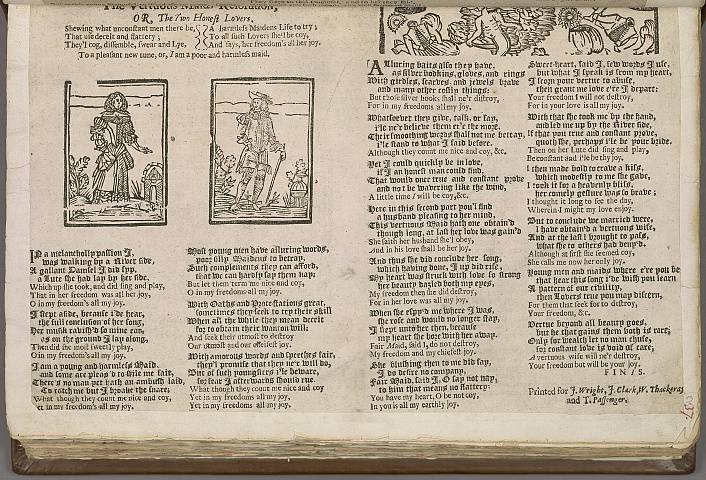 The Virtuous Maids Resolution,
OR, The Two Honest Lovers,
Shewing what unconstant men there be,
That use deceit and flattery;
They'l cog, dissemble, swear and Lye,
A harmless Maidens Life to try;
To all such Lovers she'l be coy,
And says, her freedom's all her joy.
To a pleasant new tune, or, I am a poor and harmless maid.
IN a melancholly passion I,
was walking by a River side,
A gallant Damsel I did spy,
a Lute she had lay by her side,
Which up she took, and did sing and play,
That in her freedom was all her joy,
O in my freedom's all my joy.
I stept aside, because i'de hear,
the full conclusion of her song,
Her musick ravish'd so mine ear,
as on the ground I lay along,
Then did she most sweetly play,
O in my freedom's all my joy.
I am a young and harmless Maid,
and some are pleas'd to stile me fair,
There's no man yet hath an ambush laid,
To catch me but I broke the snare:
What though they count me nice and coy,
yet in my freedom's all my joy.
Most young men have alluring words,
poor silly Maidens to betray,
Such complements they can afford,
that we can hardly say them nay:
But let them term me nice and coy,
O in my freedoms all my joy.
With Oaths and Protestations great,
sometimes they seek to try their skill
When all the while they mean deceit
for to obtain their wanton will:
And seek their utmost to destroy
Our utmost and our chiefest joy.
With amorous words and speeches fair,
they'l promise that they ne'r will do,
But of such youngsters i'le beware,
for fear I afterwards should rue.
What though they count me nice and coy
Yet in my freedoms all my joy,
Yet in my freedoms all my joy.
ALluring baits also they have,
as silver bodkins, gloves, and rings
With girdles, scarves, and jewels brave
and many other costly things:
But those silver hooks shall ne'r destroy,
For in my freedoms all my joy.
Whatsoever they give, talk, or say,
i'le ne'r believe them e're the more.
Their smoothing words shall not me betray,
i'le stand to what I said before.
Although they count me nice and coy, &c.
Yet I could quickly be in love,
if I an honest man could find,
That would once true and constant prove
and not be wavering like the wind,
A little time I will be coy, &c.
Here in this second part you'l find
a husband pleasing to her mind,
This vertuous Maid hath one obtain'd
though long, at last her love was gain'd
She saith her husband she'l obey,
And in his love shall be her joy.
And thus she did conclude her song,
which having done, I up did rise,
My heart was struck with love so strong
her beauty dazled both my eyes,
My freedom then she did destroy,
For in her love was all my joy.
When she espy'd me where I was,
she rose and would no longer stay,
I stept unto her then, because
my heart she bore with her away.
Fair Maid, said I, do not destroy,
My freedom and my chiefest joy.
She blushing then to me did say,
I do desire no company,
Fair Maid, said I, O say not nay,
to him that means no flattery:
You have my heart, O be not coy,
In you is all my earthly joy.
Sweet-heart, said I, few words I use,
but what I speak is from my heart,
I scorn your vertue to abuse,
then grant me love e're I depart:
Your freedom I will not destroy,
For in your love is all my joy.
With that she took me by the hand,
and led me up by the River side,
If that you true and constant prove,
quoth she, perhaps i'le be your bride.
Then on her Lute did sing and play,
Be constant and i'le be thy joy.
I then made bold to crave a kiss,
which modestly to me she gave,
I took it for a heavenly bliss,
her comely gesture was so brave;
I thought it long to see the day,
Wherein I might my love enjoy.
But to conclude we married were,
I have obtain'd a vertuous wife,
And at the last I brought to pass,
what she to others had deny'd.
Although at first she seemed coy,
She calls me now her only joy.
Young men and maids where e're you be
that hear this song i'de wish you learn
A pattern of our civility,
then Lovers true you may discern,
For them that seek for to destroy,
Your freedom, &c.
Vertue beyond all beauty goes,
but he that gains them both is rare;
Only for wealth let no man chuse,
for constant love is void of care;
A vertuous wife will ne'r destroy,
Your freedom but will be your joy.
FINIS.
Printed for J. Wright, J. Clark, W. Thackeray
and T. Passenger.